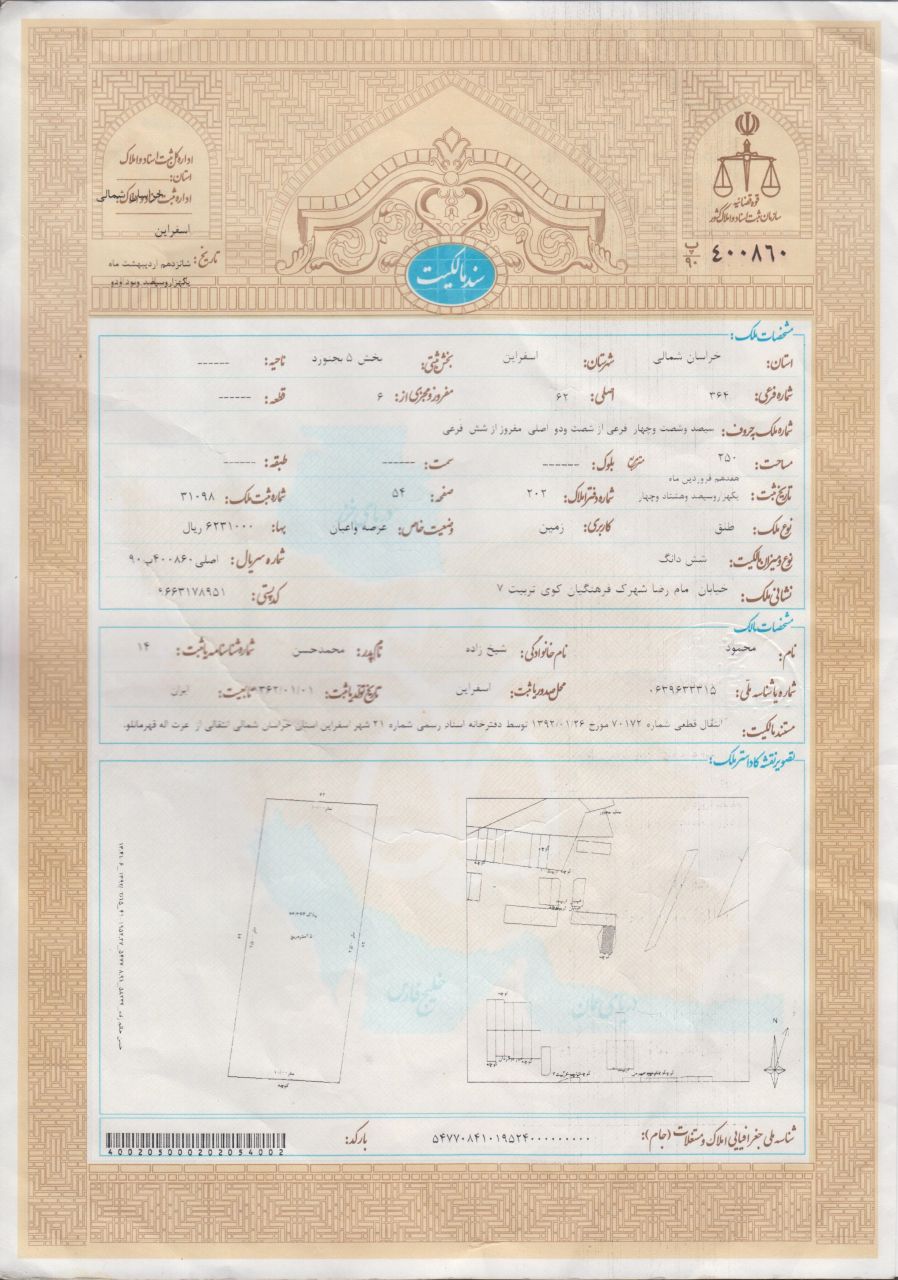 اداره کل ثبت اسناد و املاک
استان:
خراسان شمالی
اداره ثبت اسناد و املاک:
اسفراین
تاریخ: شانزدهم اردیبهشت ماه
یکهزاروسیصد ونود ودو
قوه قضائیه
سازمان ثبت اسناد و املاک کشور
۴۰۰۸۶۰ ب ۹۰
سند مالکیت
مشخصات ملک:
استان: خراسان شمالی شهرستان: اسفراین بخش ثبتی: بخش ۵ بجنورد ناحیه: ------
شماره فرعی: ۳۶۴ اصلی: ۶۲ مفروز و مجزی از: ۶ قطعه: ------
شماره ملک بحروف: سیصد وشصت وچهار فرعی از شصت ودو اصلی مفروز از شش فرعی
مساحت: ۲۵۰ مترمربع بلوک: ------ سمت: ------ طبقه: ------
هفدهم فروردین ماه
تاریخ ثبت: یکهزاروسیصد وهشتاد وچهار شماره دفتر املاک: ۲۰۲ صفحه: ۵۴ شماره ثبت ملک: ۳۱۰۹۸
نوع ملک: طلق کاربری: زمین وضعیت خاص: عرصه واعیان بها: ۶۲۳۱۰۰۰ ریال
نوع و میزان مالکیت: شش دانگ شماره سریال: اصلی۴۰۰۸۶۰ب۹۰
نشانی ملک: خیابان مام رضا شهرک فرهنگیان کوی تربیت ۷ کدپستی: ۹۶۶۳۱۷۸۹۵۱
مشخصات مالک
نام: محمود نام خانوادگی: شیخ زاده نام پدر: محمدحسن شماره شناسنامه یا ثبت: ۱۴
شماره یا شناسه ملی: ۰۶۳۹۶۳۳۳۱۵ محل صدور یا ثبت: اسفراین تاریخ تولد یا ثبت: ۱۳۶۲/۰۱/۰۱ تابعیت: ایران
مستند مالکیت: انتقال قطعی شماره ۷۰۱۷۲ مورخ ۱۳۹۲/۰۱/۲۶ توسط دفترخانه اسناد رسمی شماره ۲۱ شهر اسفراین استان خراسان شمالی انتقالی از عزت اله قهرمانلو.
تصویر نقشه کاداستر ملک:
کوچه
کوچه
N
خلیج فارس
دریای عمان
دریای خزر
شناسه ملی جغرافیایی املاک و مستغلات (جام): ۵۴۷۷۰۸۴۱۰۱۹۵۲۴۰۰۰۰۰۰۰۰۰۰ بارکد:
400205000202054002